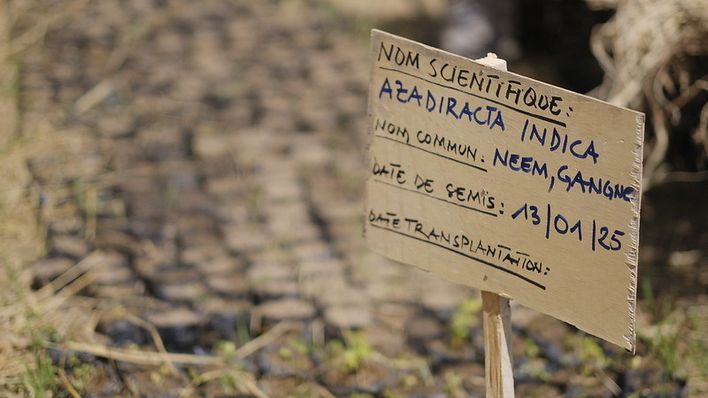 NOM SCIENTIFIQUE:
AZADIRACTA INDICA
NOM COMMUN: NEEM, GANGNE
DATE DE SEMIS: 13/01/25
DATE TRANSPLANTATION: